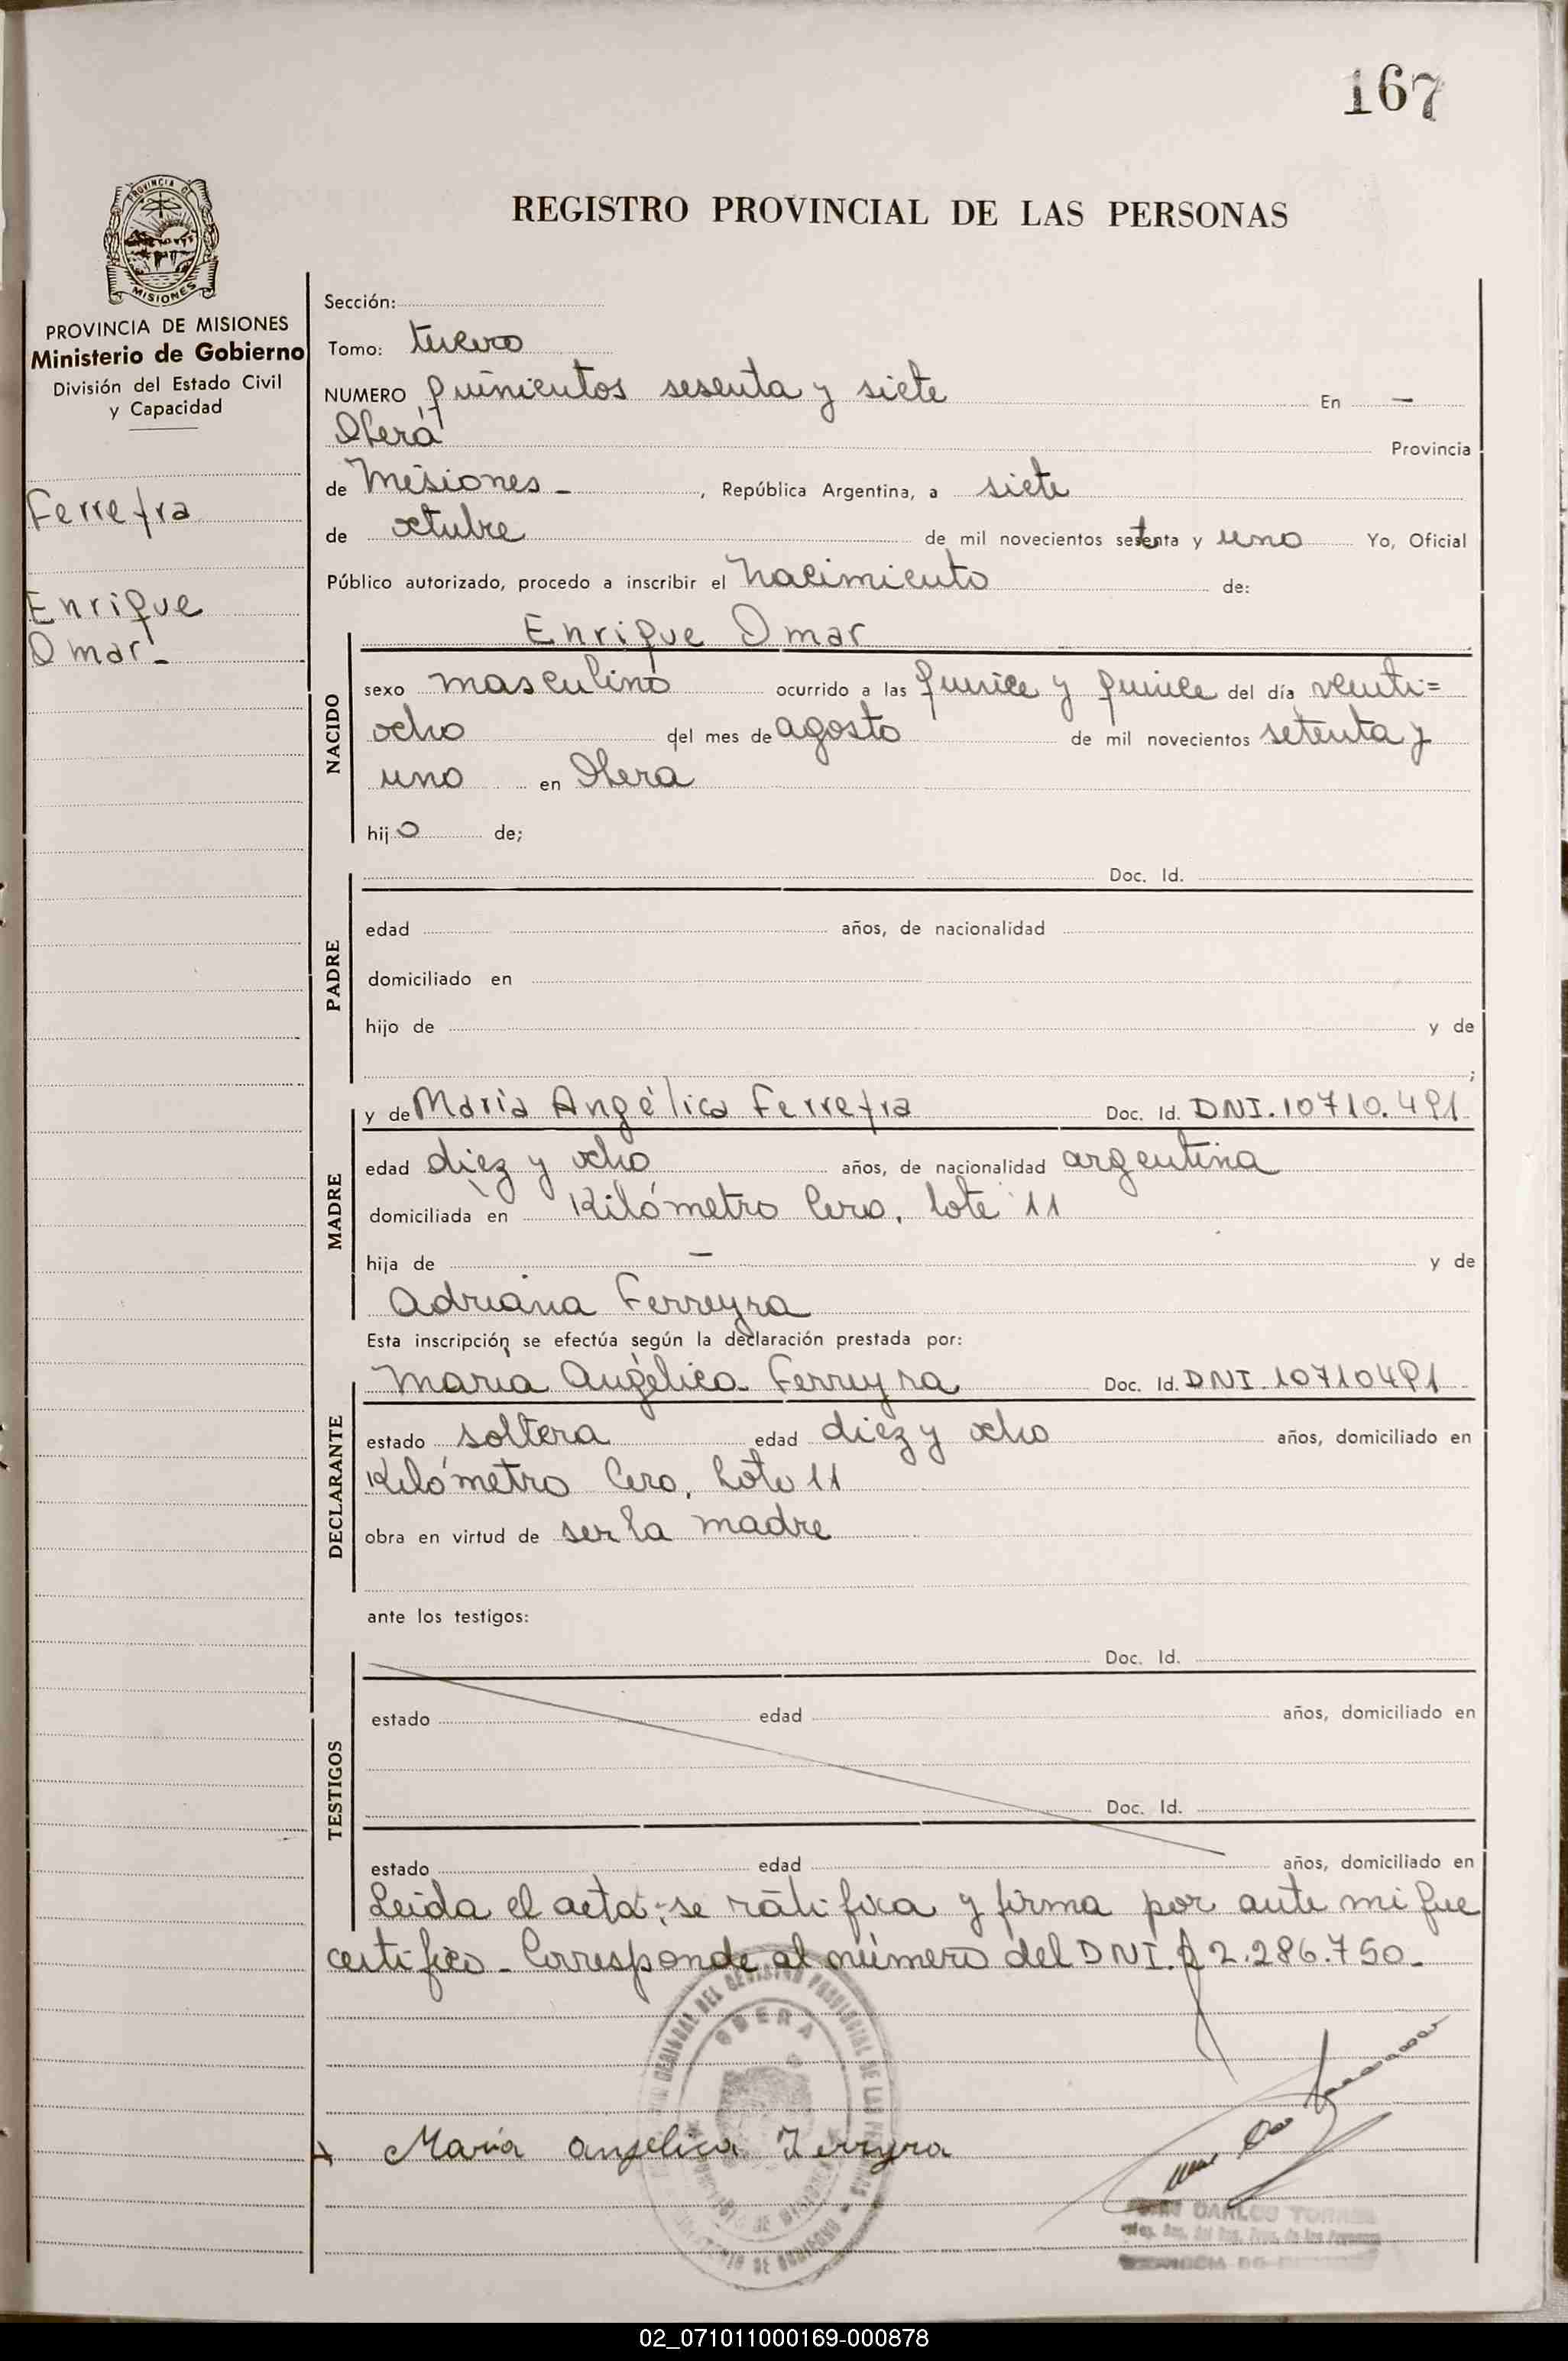 167
PROVINCIA DE
MISIONES
PROVINCIA DE MISIONES
Ministerio de Gobierno
División del Estado Civil
y Capacidad
Ferreyra
Enrique
Omar.-
REGISTRO PROVINCIAL DE LAS PERSONAS
Sección:
Tomo: tercero
NUMERO quinientos sesenta y siete En —
Oberá Provincia
de Misiones - , República Argentina, a siete
de octubre de mil novecientos setenta y uno Yo, Oficial
Público autorizado, procedo a inscribir el nacimiento de:
NACIDO
Enrique Omar
sexo masculino ocurrido a las quince y quince del día veinti=
ocho del mes de agosto de mil novecientos setenta y
uno en Oberá
hijo de;
PADRE
Doc. Id.
edad años, de nacionalidad
domiciliado en
hijo de y de
;
MADRE
y de María Angélica Ferreyra Doc. Id. DNI.10710.491
edad diez y ocho años, de nacionalidad argentina
domiciliada en Kilómetro Cero, lote 11
hija de — y de
Adriana Ferreyra
Esta inscripción se efectúa según la declaración prestada por:
DECLARANTE
María Angélica Ferreyra Doc. Id. DNI.10710491
estado soltera edad diez y ocho años, domiciliado en
Kilómetro Cero, Lote 11
obra en virtud de ser la madre
ante los testigos:
TESTIGOS
Doc. Id.
estado edad años, domiciliado en
Doc. Id.
estado edad años, domiciliado en
Leída el acta, se ratifica y firma por ante mi que
certifico - Corresponde al número del DNI. 22.286.750.-
OBERA
María angelica Ferreyra
CARLOS TORRES
02_071011000169-000878